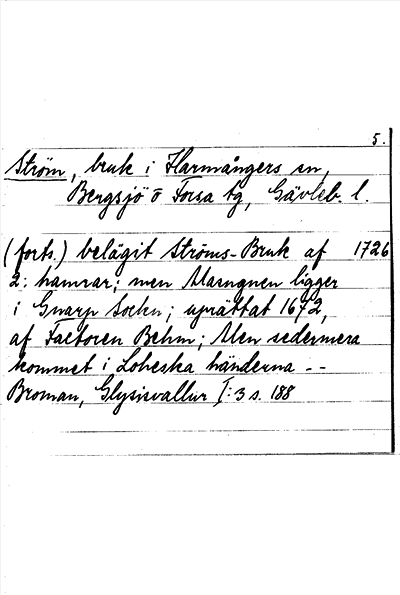 5.
Ström, bruk i Harmångers sn,
Bergsjö o Forsa tg, Gävleb. l.
(forts.) belägit Ströms-Bruk af 1726
2: hamrar; men Masugnen ligger
i Gnarp Sockn; uprättat 1672,
af Factoren Behm; Men sedermera
kommet i Loheska händerna --
Broman, Glysisvallur I:3 s. 188